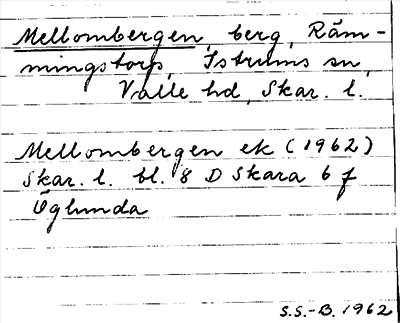 Mellombergen, berg, Räm-
mingstorp, Istrums sn,
Valle hd, Skar. l.
Mellombergen ek (1962)
Skar. l. bl. 8 D Skara 6 f
Öglunda
S.S.-B. 1962